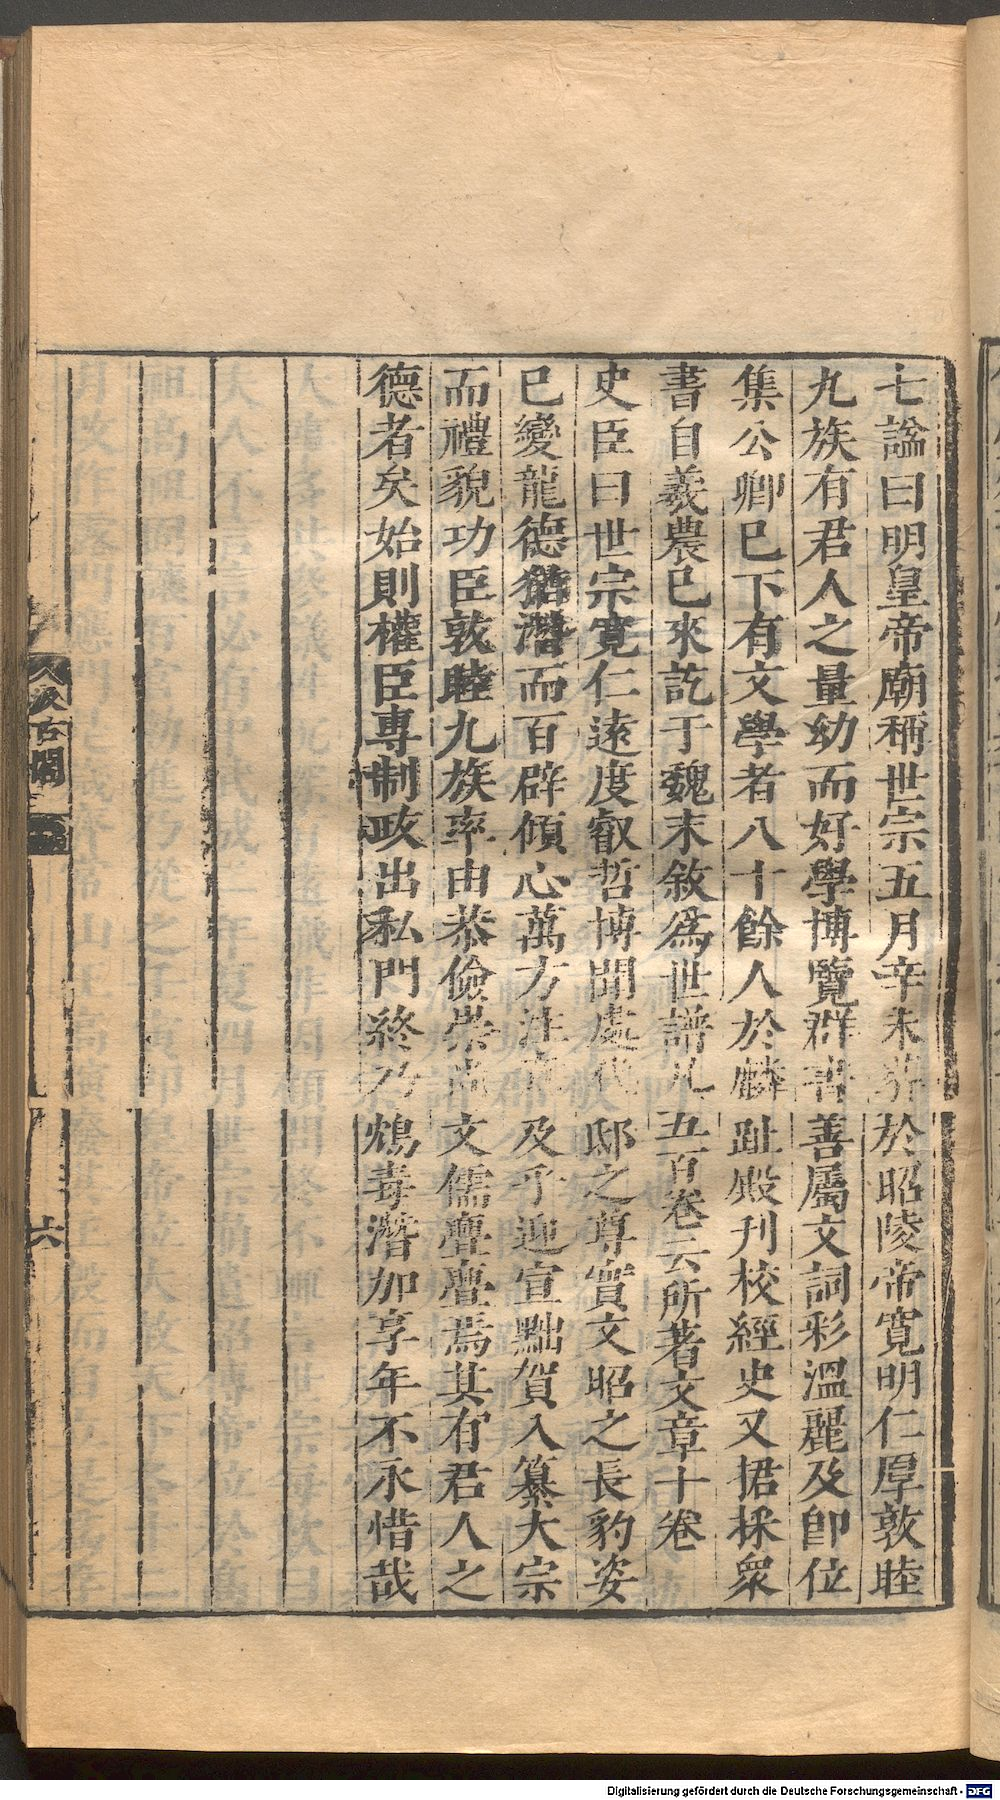 七諡曰明皇帝廟稱世宗五月辛未葬於昭陵帝寬明仁厚敦睦
九族有君人之量幼而好學博覽群書善屬文詞彩溫麗及卽位
集公卿已下有文學者八十餘人於麟趾殿刊校經史又捃採衆
書自羲農已來訖于魏末敘爲世譜凡五百卷云所著文章十卷
史臣曰世宗寬仁遠度叡哲博聞處代邸之尊實文昭之長豹姿
已變龍德猶潛而百辟傾心萬方注意及乎迎宣黜賀入纂大宗
而禮貌功臣敦睦九族率由恭儉崇尚文儒亹亹焉其有君人之
德者矣始則權臣專制政出私門終乃鴆毒潛加享年不永惜哉
汲古閣
六
Digitalisierung gefördert durch die Deutsche Forschungsgemeinschaft - DFG